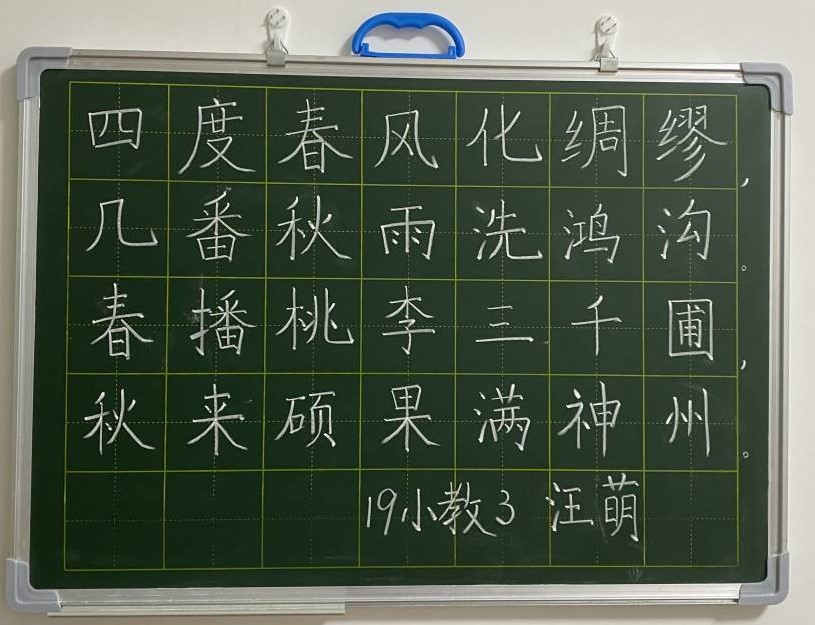 四度春风化绸缪，
几番秋雨洗鸿沟。
春播桃李三千圃，
秋来硕果满神州。
19小教3 汪萌